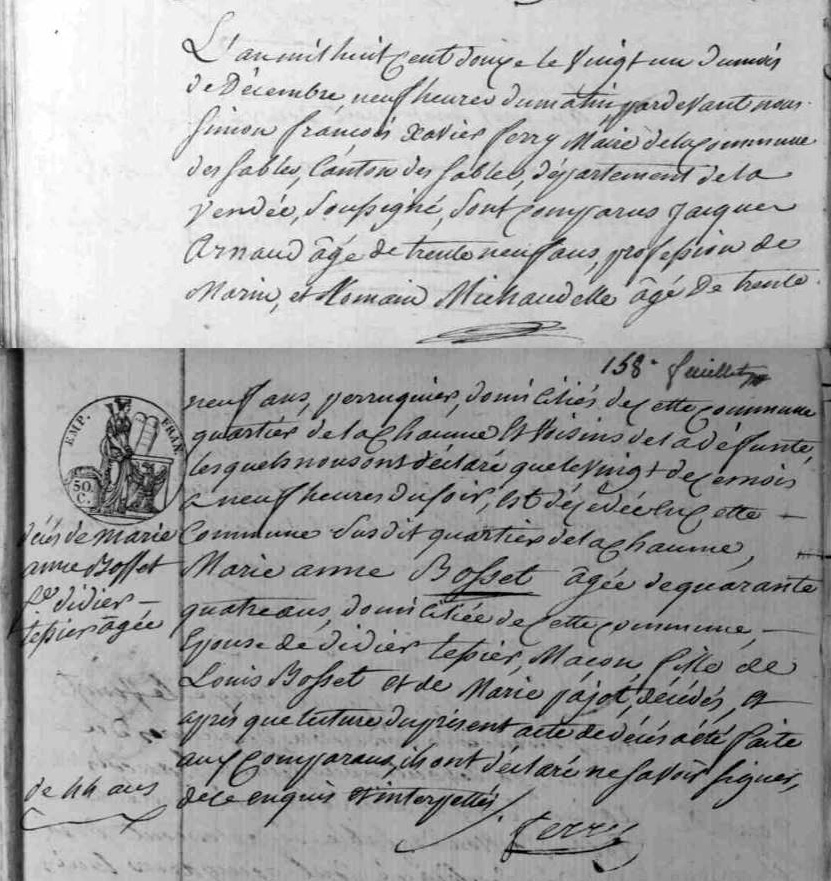 L'an mil huit cent douze le vingt un du mois
de Décembre, neuf heures du matin, pardevant nous
Simon françois Xavier ferry Maire de la Commune
des Sables, Canton des Sables, département de la
Vendée, Soussigné, Sont Comparus Jacques
Arnaud âgé de trente neuf ans, profession de
Marin, et Romain Michaudelle âgé De trente
158e feuillet
neuf ans, perruquier, domiciliés de cette commune
quartier de la Chaume Et Voisins de la défunte,
Lesquels nous ont déclaré que le vingt de ce mois
a neuf heures du soir, Est décédée En Cette
Commune Susdit quartier de la Chaume,
Marie anne Bosset âgée de quarante
quatre ans, domiciliée de Cette Commune,
Epouse de didier tessier, Maçon, fille de
Louis Bosset et de Marie pajot, décédés, et
après que lecture du présent acte de décés a été faite
aux Comparans, ils ont déclaré ne savoir signer,
de ce enquis Et interpellés
ferry
EMP. FRAN.
50 C.
décés de marie
anne Bosset
fe didier
tessier âgée
de 44 ans